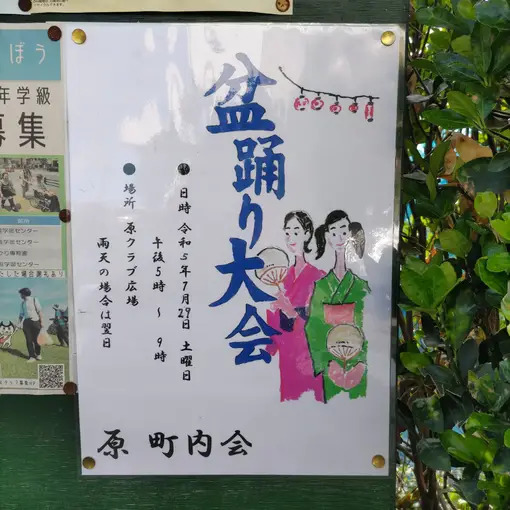 盆踊り大会
● 日時 令和5年7月29日 土曜日
午後5時〜9時
● 場所 原クラブ広場
雨天の場合は翌日
原 町内会
ぼう
年学級
募集